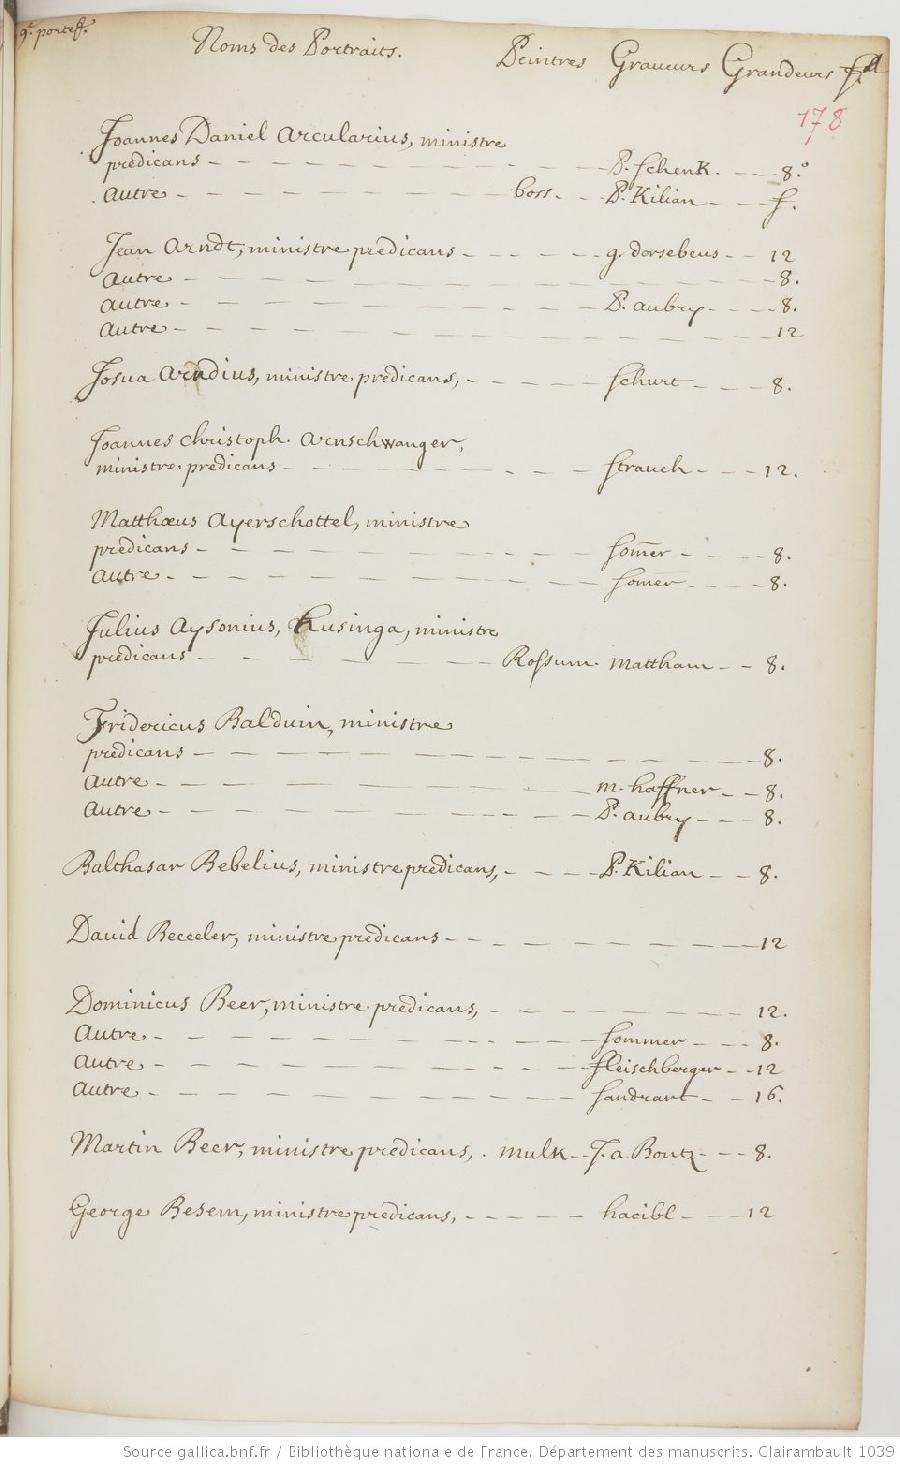 9.e portef.
Noms des Portraits. Peintres Graveurs Grandeurs
178
Joannes Daniel Arcularius, ministre
predicans - - - P. Schenk. - - 8.o
Autre - - - boss. - - P. Kilian - - f.
Jean Arndt, ministre predicans - - - g. dorsebeus - - 12
Autre - - - 8.
Autre - - - P. Aubry - - - 8.
Autre - - - 12
Josua Arndius, ministre predicans, - - - Schurt - - - 8.
Joannes Christoph. Arnschwanger,
ministre predicans - - - Strauch - - - 12.
Matthæus Ayerschottel, ministre
predicans - - - Som̃er - - - 8.
Autre - - - Som̃er - - - 8.
Julius Aysonius, Husinga, ministre
predicans - - - Rossum. Mattham - - 8.
Fridericus Balduin, ministre
predicans - - - 8.
Autre - - - M. haffner - - 8.
Autre - - - P. Aubry - - - 8.
Balthasar Bebelius, ministre predicans, - - - P. Kilian - - 8.
David Becceler, ministre predicans - - - 12
Dominicus Beer, ministre predicans, - - - 12.
Autre - - - Sommer - - - 8.
Autre - - - fleischberger - - 12
Autre - - - Sandrart - - 16.
Martin Beer, ministre predicans, . mulk - - J. a. Bontz - - - 8.
George Besem, ministre predicans, - - - hacibl - - - 12
Source gallica.bnf.fr / Bibliothèque nationale de France. Département des manuscrits. Clairambault 1039